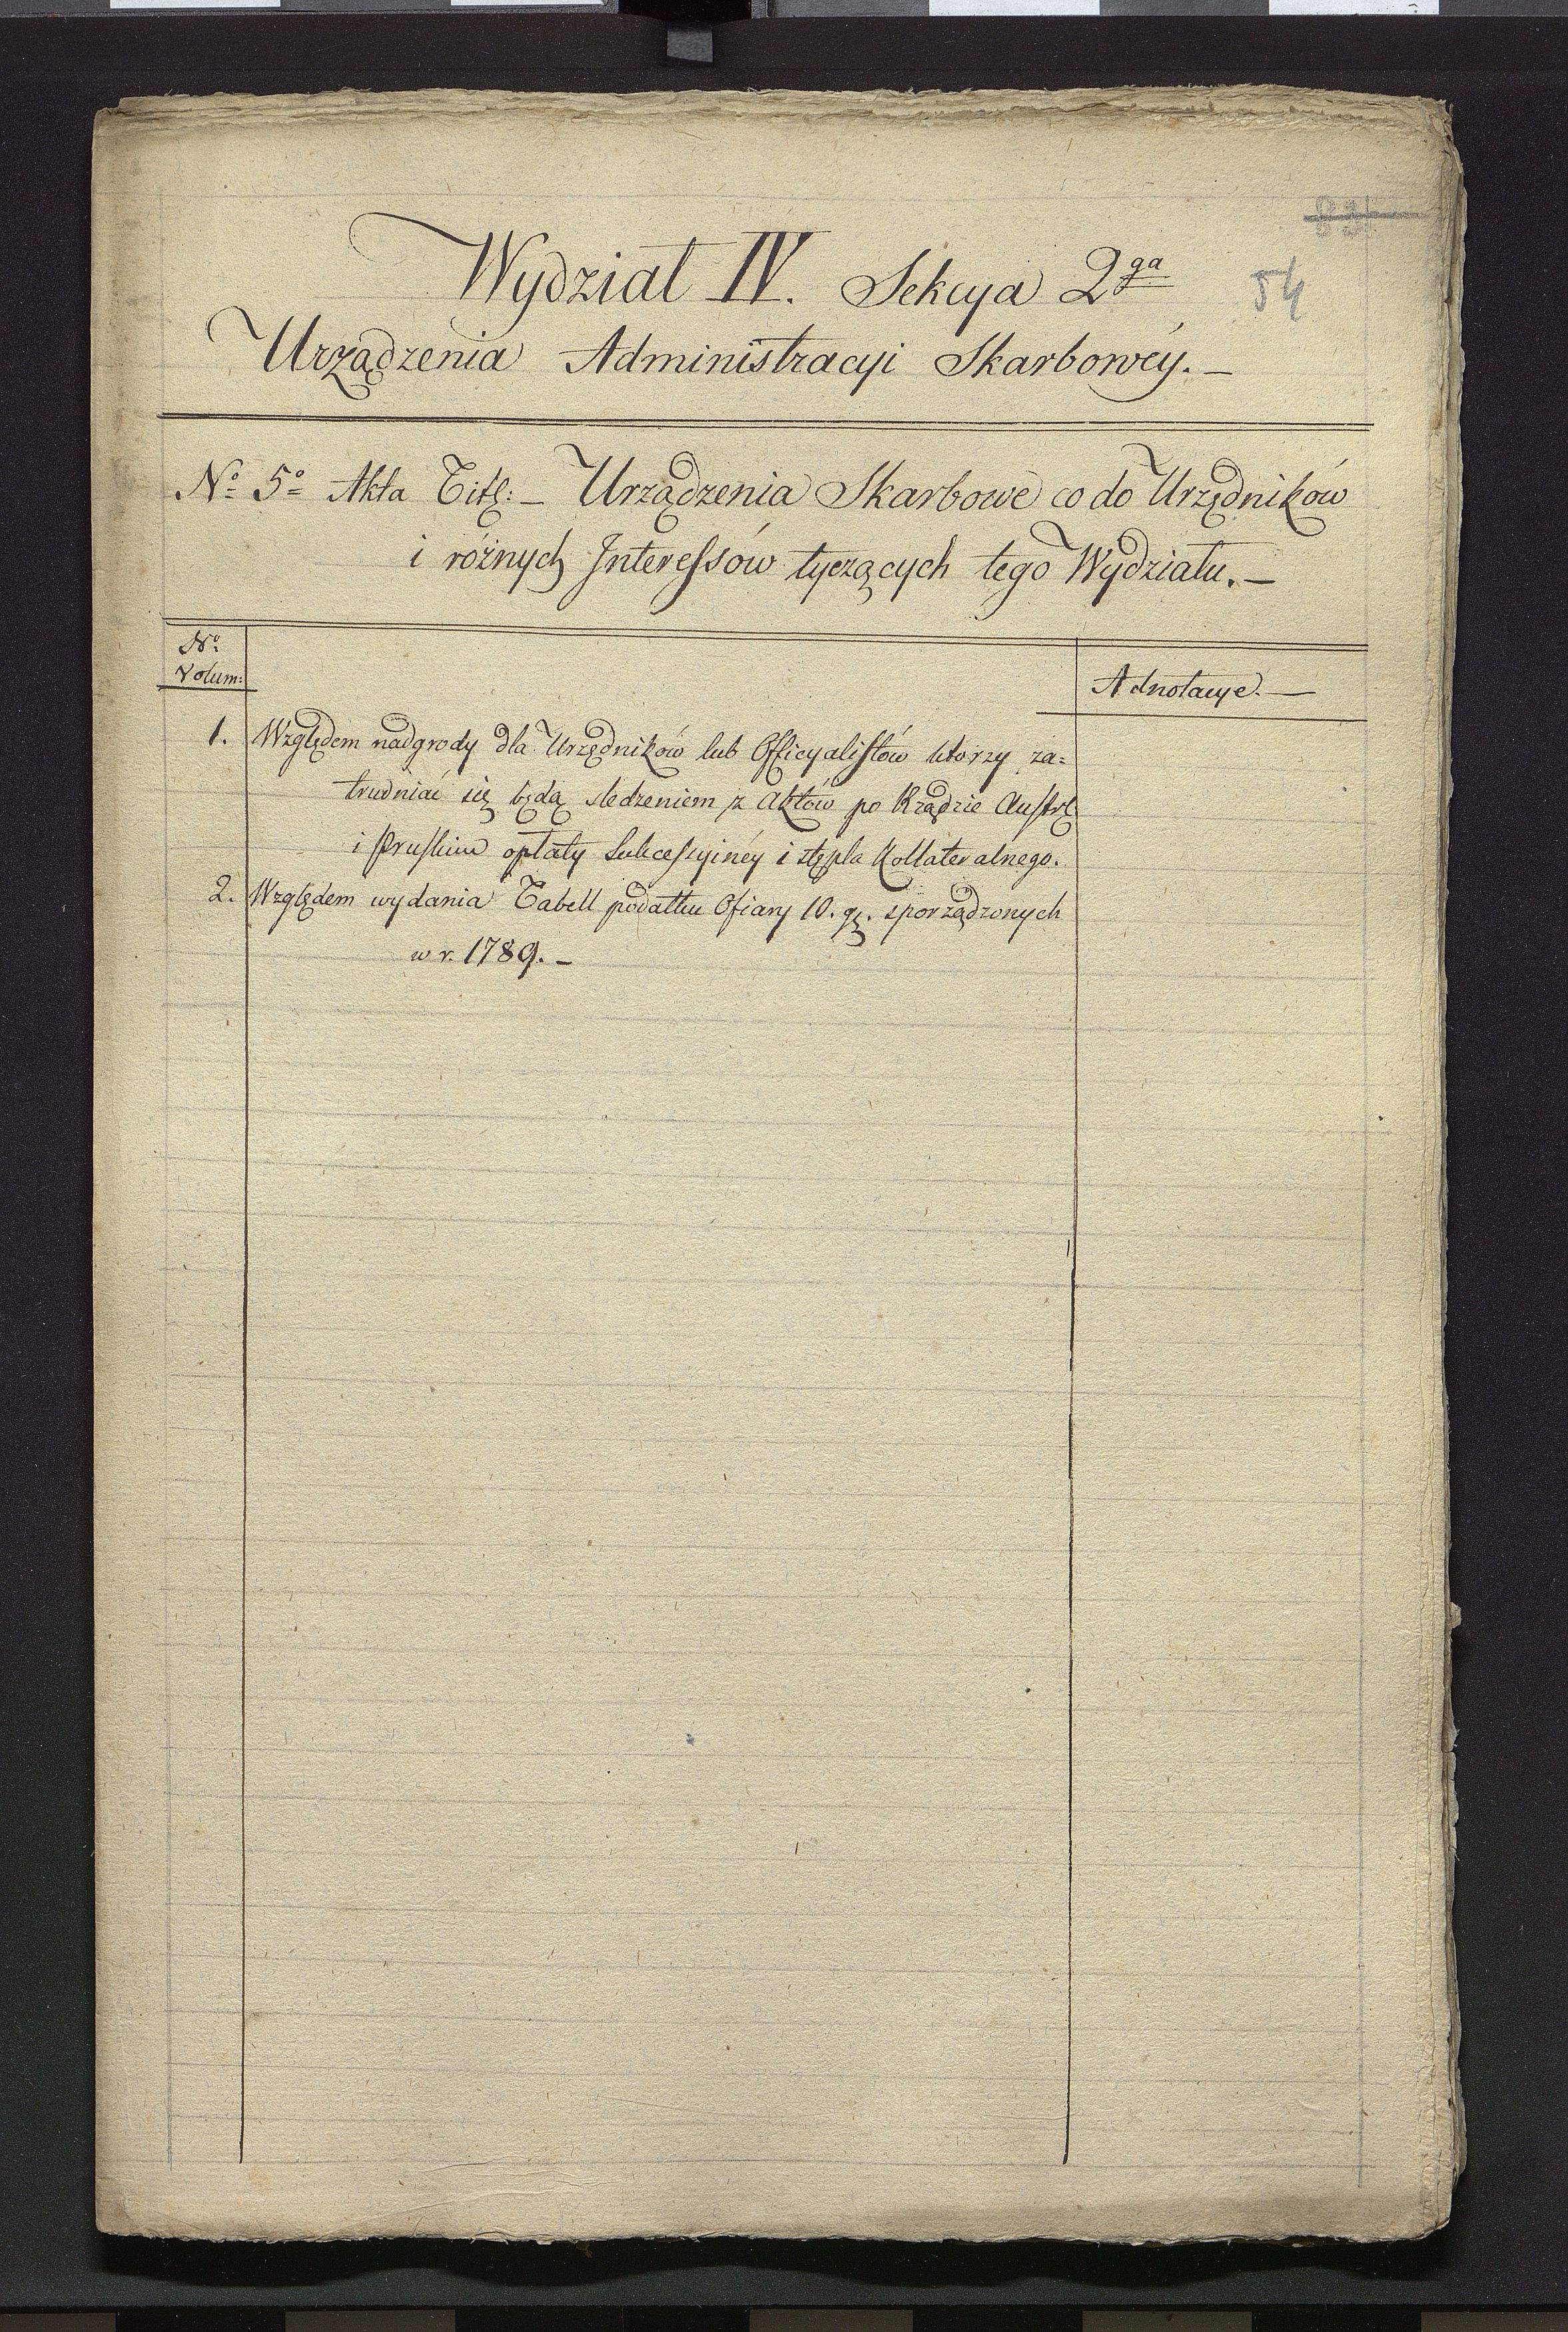 Wydział IV. Sekcya 2ga
54
Urządzenia Administracyi Skarbowéy. —
No 5o Akta Titł: — Urządzenia Skarbowe co do Urzędników
i różnych Interessów tyczących tego Wydziału. —
No
Volum:
Adnotacye. —
1. Względem nadgrody dla Urzędników lub Officyalistów ktorzy za=
trudniać się będą sledzeniem z Aktów po Rządzie Austr:
i Pruskim opłaty Sukcessyinéy i stępla Kollateralnego.
2. Względem wydania Tabell podatku Ofiary 10. gr. sporządzonych
w r. 1789. —